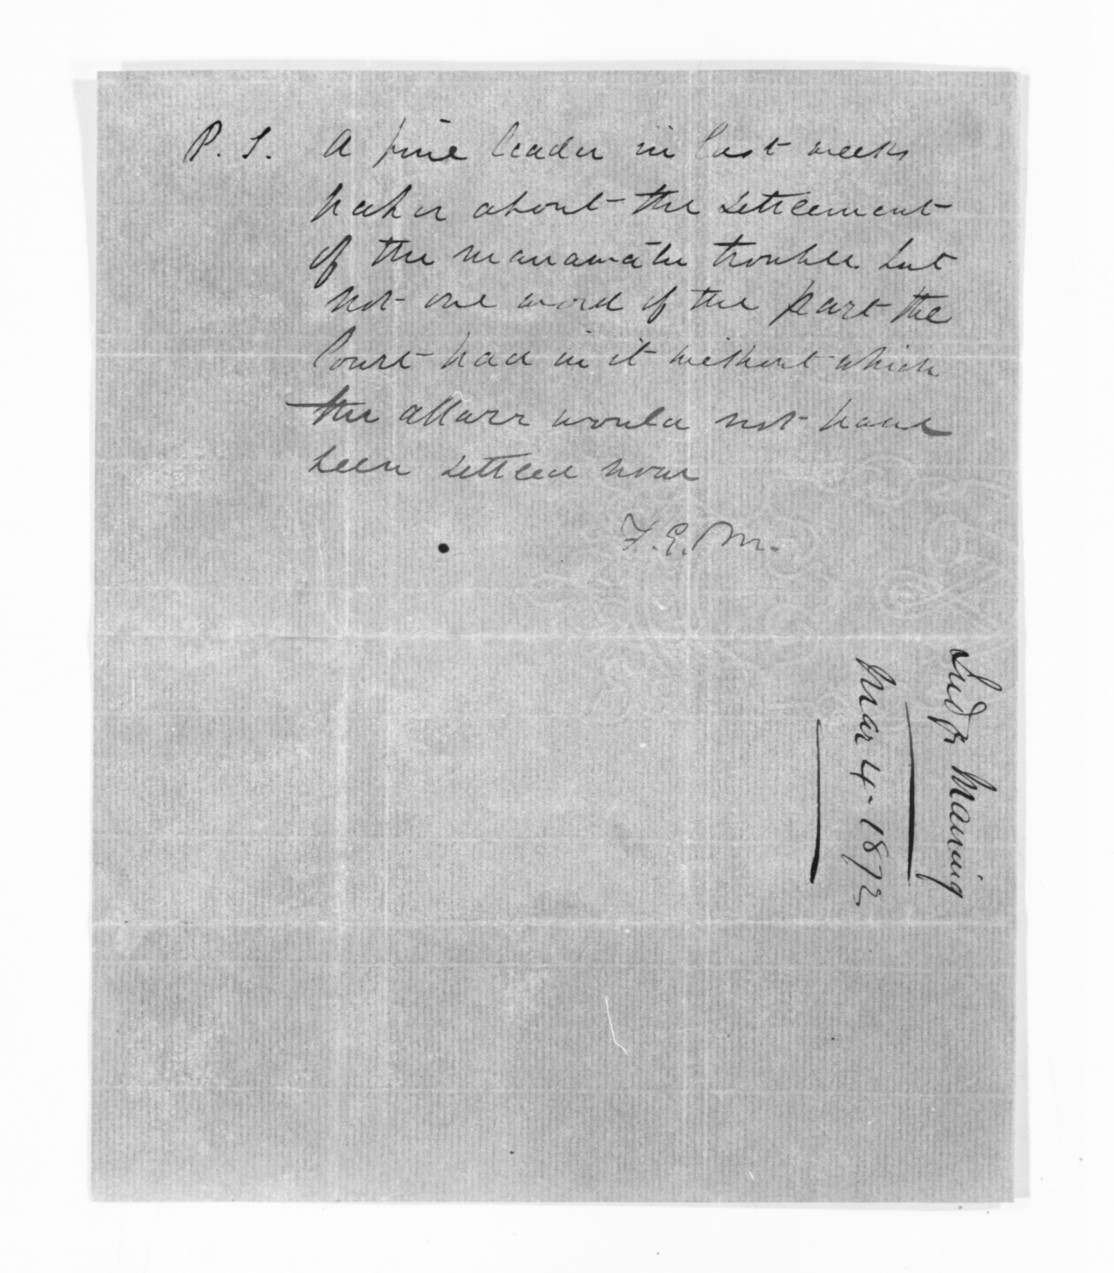 P. S. A fine leader in last weeks
paper about the settlement
of the manawatu trouble but
not one word of the part the
Court had in it without which
the affair would not have
been settled now
F. E. M.
Judge Maning
Mar 4 - 1872